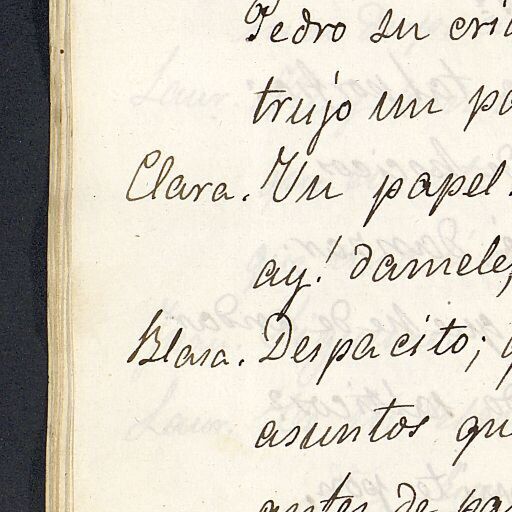 Pedro su cria
trujo un pa
Clara. Un papel.
ay! damele,
Blasa. Despacito; q
asuntos qu
antes de pa